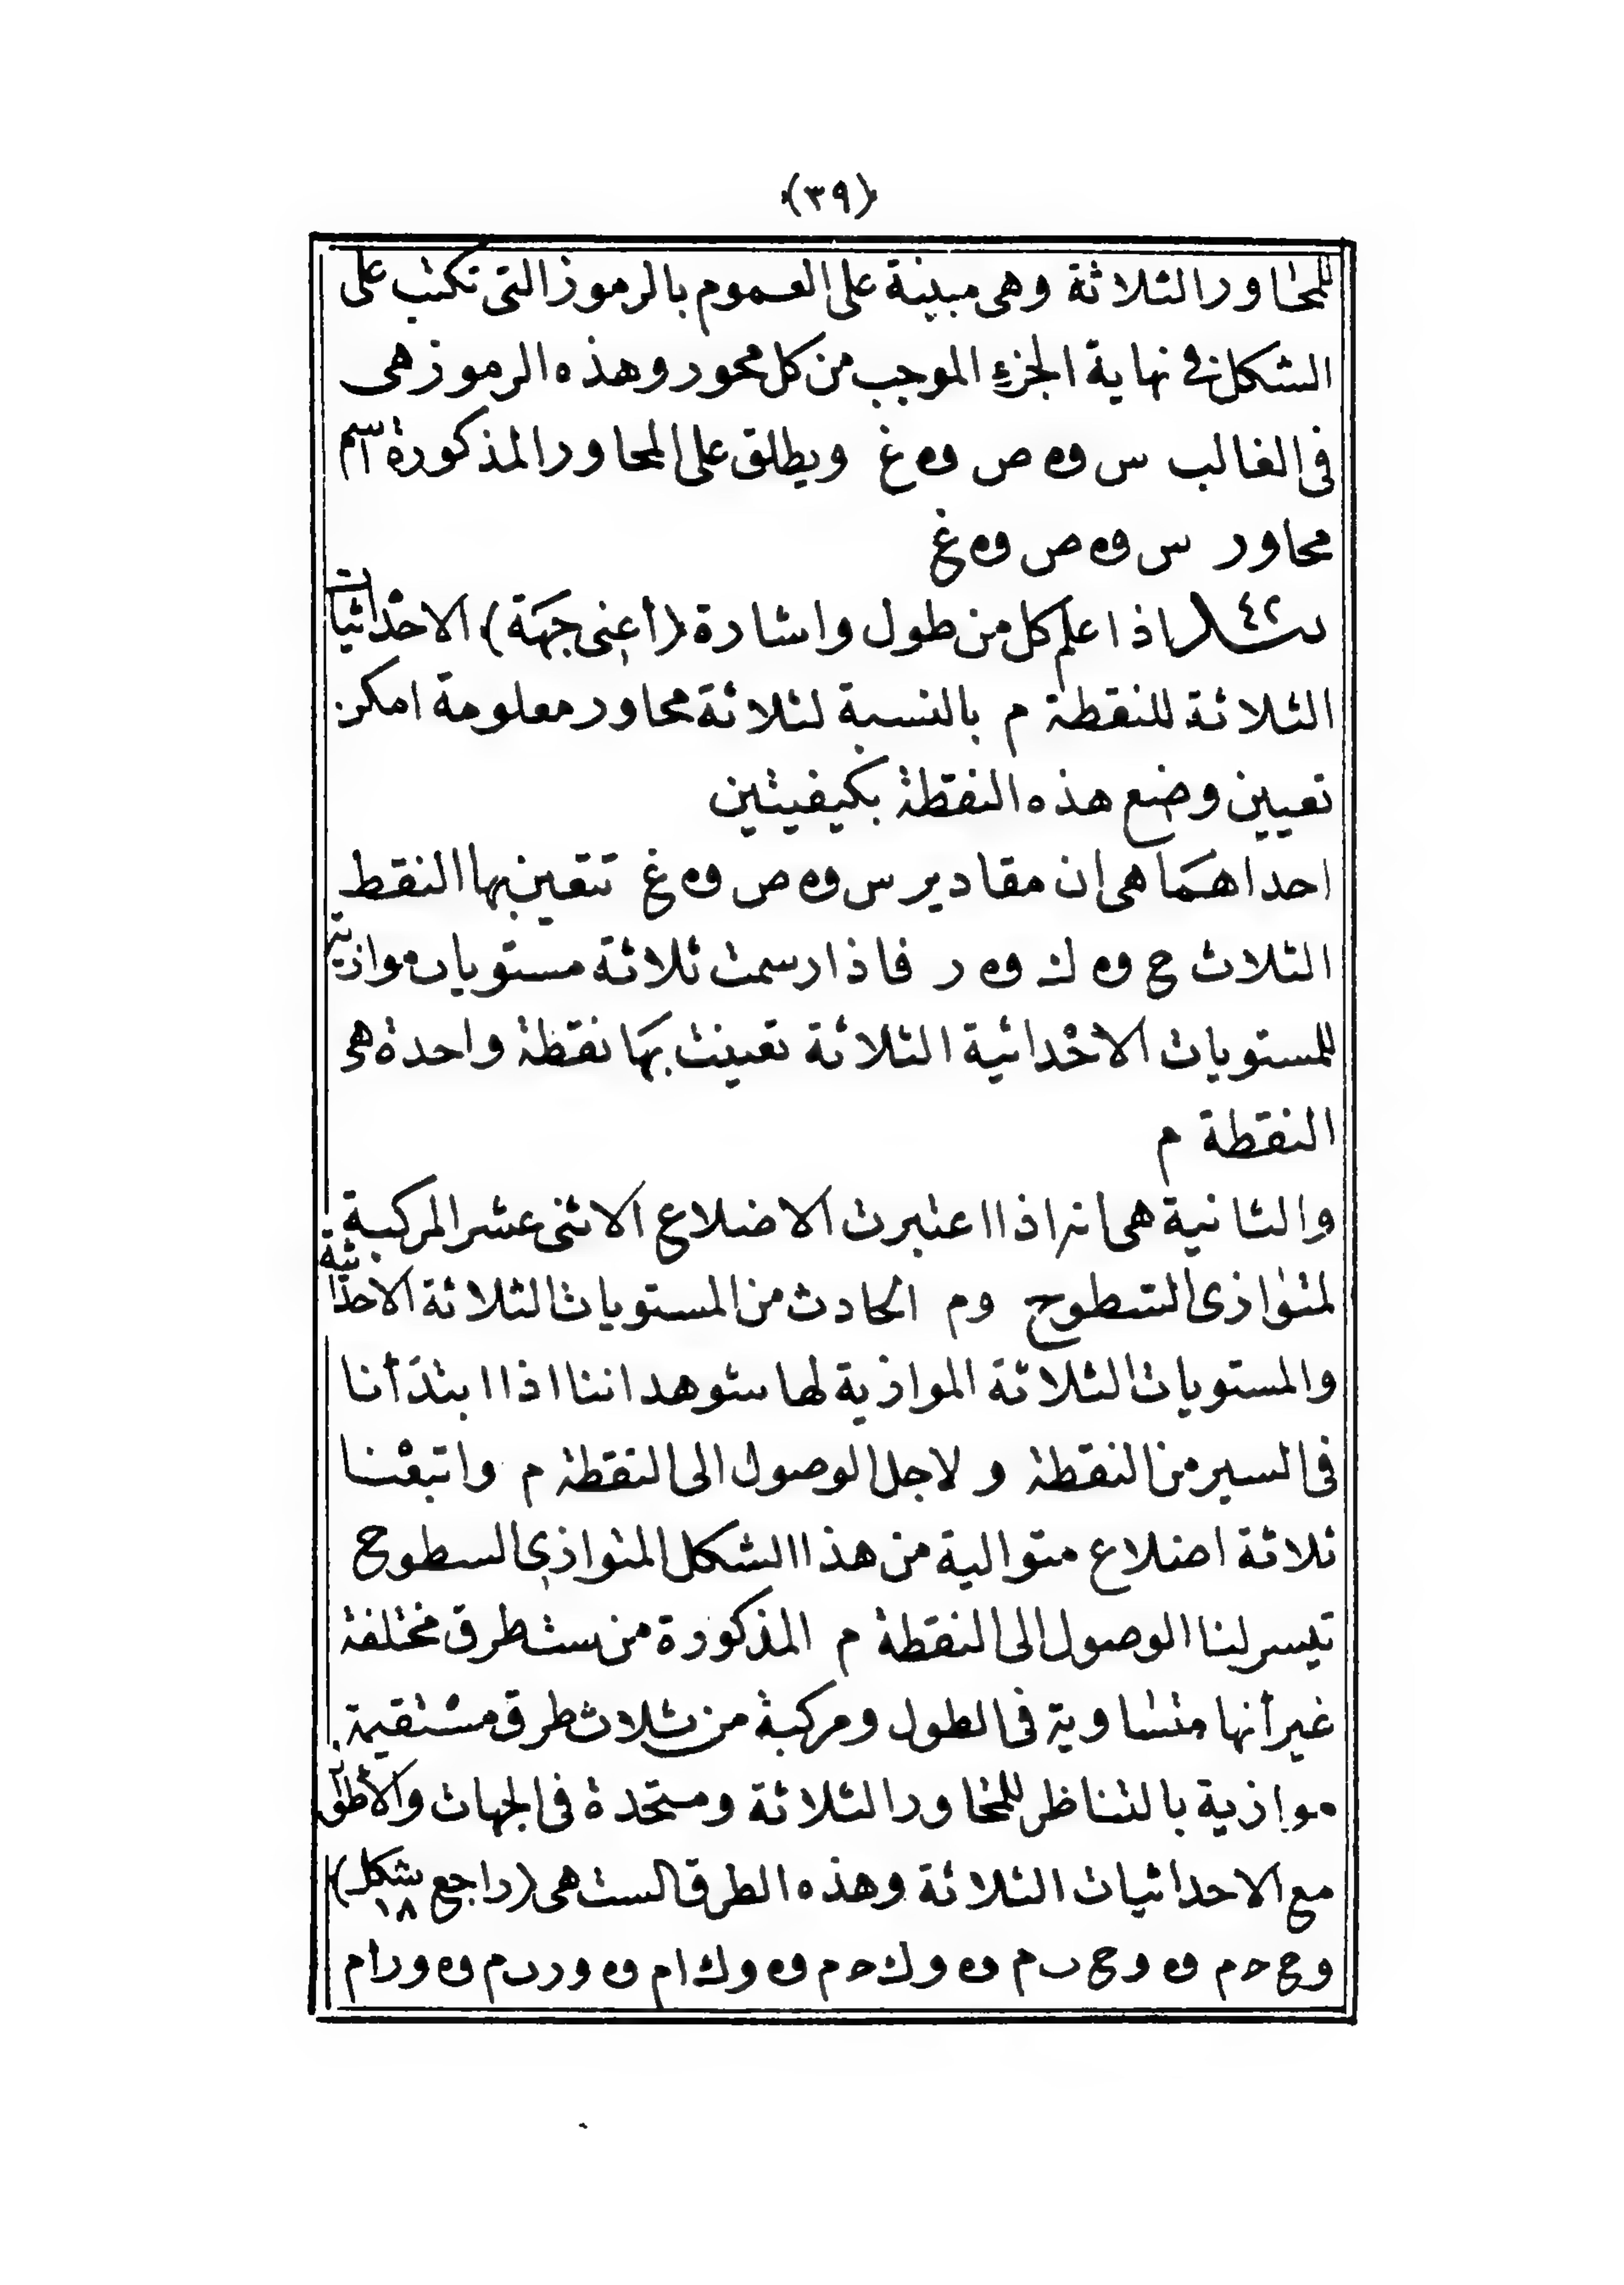 (٣٩)
للمحاور الثلاثة وهى مبينة على العموم بالرموز التى تكتب على
الشكل فى نهاية الجزء الموجب من كل محور وهذه الرموز هى
فى الغالب س و ه ص و ه غ ويطلق على المحاور المذكورة اسم
محاور س و ه ص و ه غ
٤٢ اذا علم كل من طول واشارة (أعنى جهة) الاحداثيات
الثلاثة للنقطة م بالنسبة لثلاثة محاور معلومة امكن
تعيين وضع هذه النقطة بكيفيتين
احداهما هى ان مقادير س و ه ص و ه غ تتعين بها النقط
الثلاث ح و ه ك و ه ر فاذا رسمت ثلاثة مستويات موازية
للمستويات الاحداثية الثلاثة تعينت بها نقطة واحدة هى
النقطة م
والثانية هى انه اذا اعتبرت الاضلاع الاثنى عشر المركبة
لمتوازى السطوح وم الحادث من المستويات الثلاثة الاحداثية
والمستويات الثلاثة الموازية لها شوهد اننا اذا ابتدأنا
فى السير من النقطة و لاجل الوصول الى النقطة م واتبعنا
ثلاثة اضلاع متوالية من هذا الشكل المتوازى السطوح
تيسر لنا الوصول الى النقطة م المذكورة من ست طرق مختلفة
غير أنها متساوية فى الطول ومركبة من ثلاث طرق مستقيمة
موازية بالتناظر للمحاور الثلاثة ومتحدة فى الجهات والأطوال
مع الاحداثيات الثلاثة وهذه الطرق الست هى (راجع شكل ١٨)
وح حم و ه وح ٮم و ه وك حم و ه وك ام و ه ور ٮم و ه ور ام